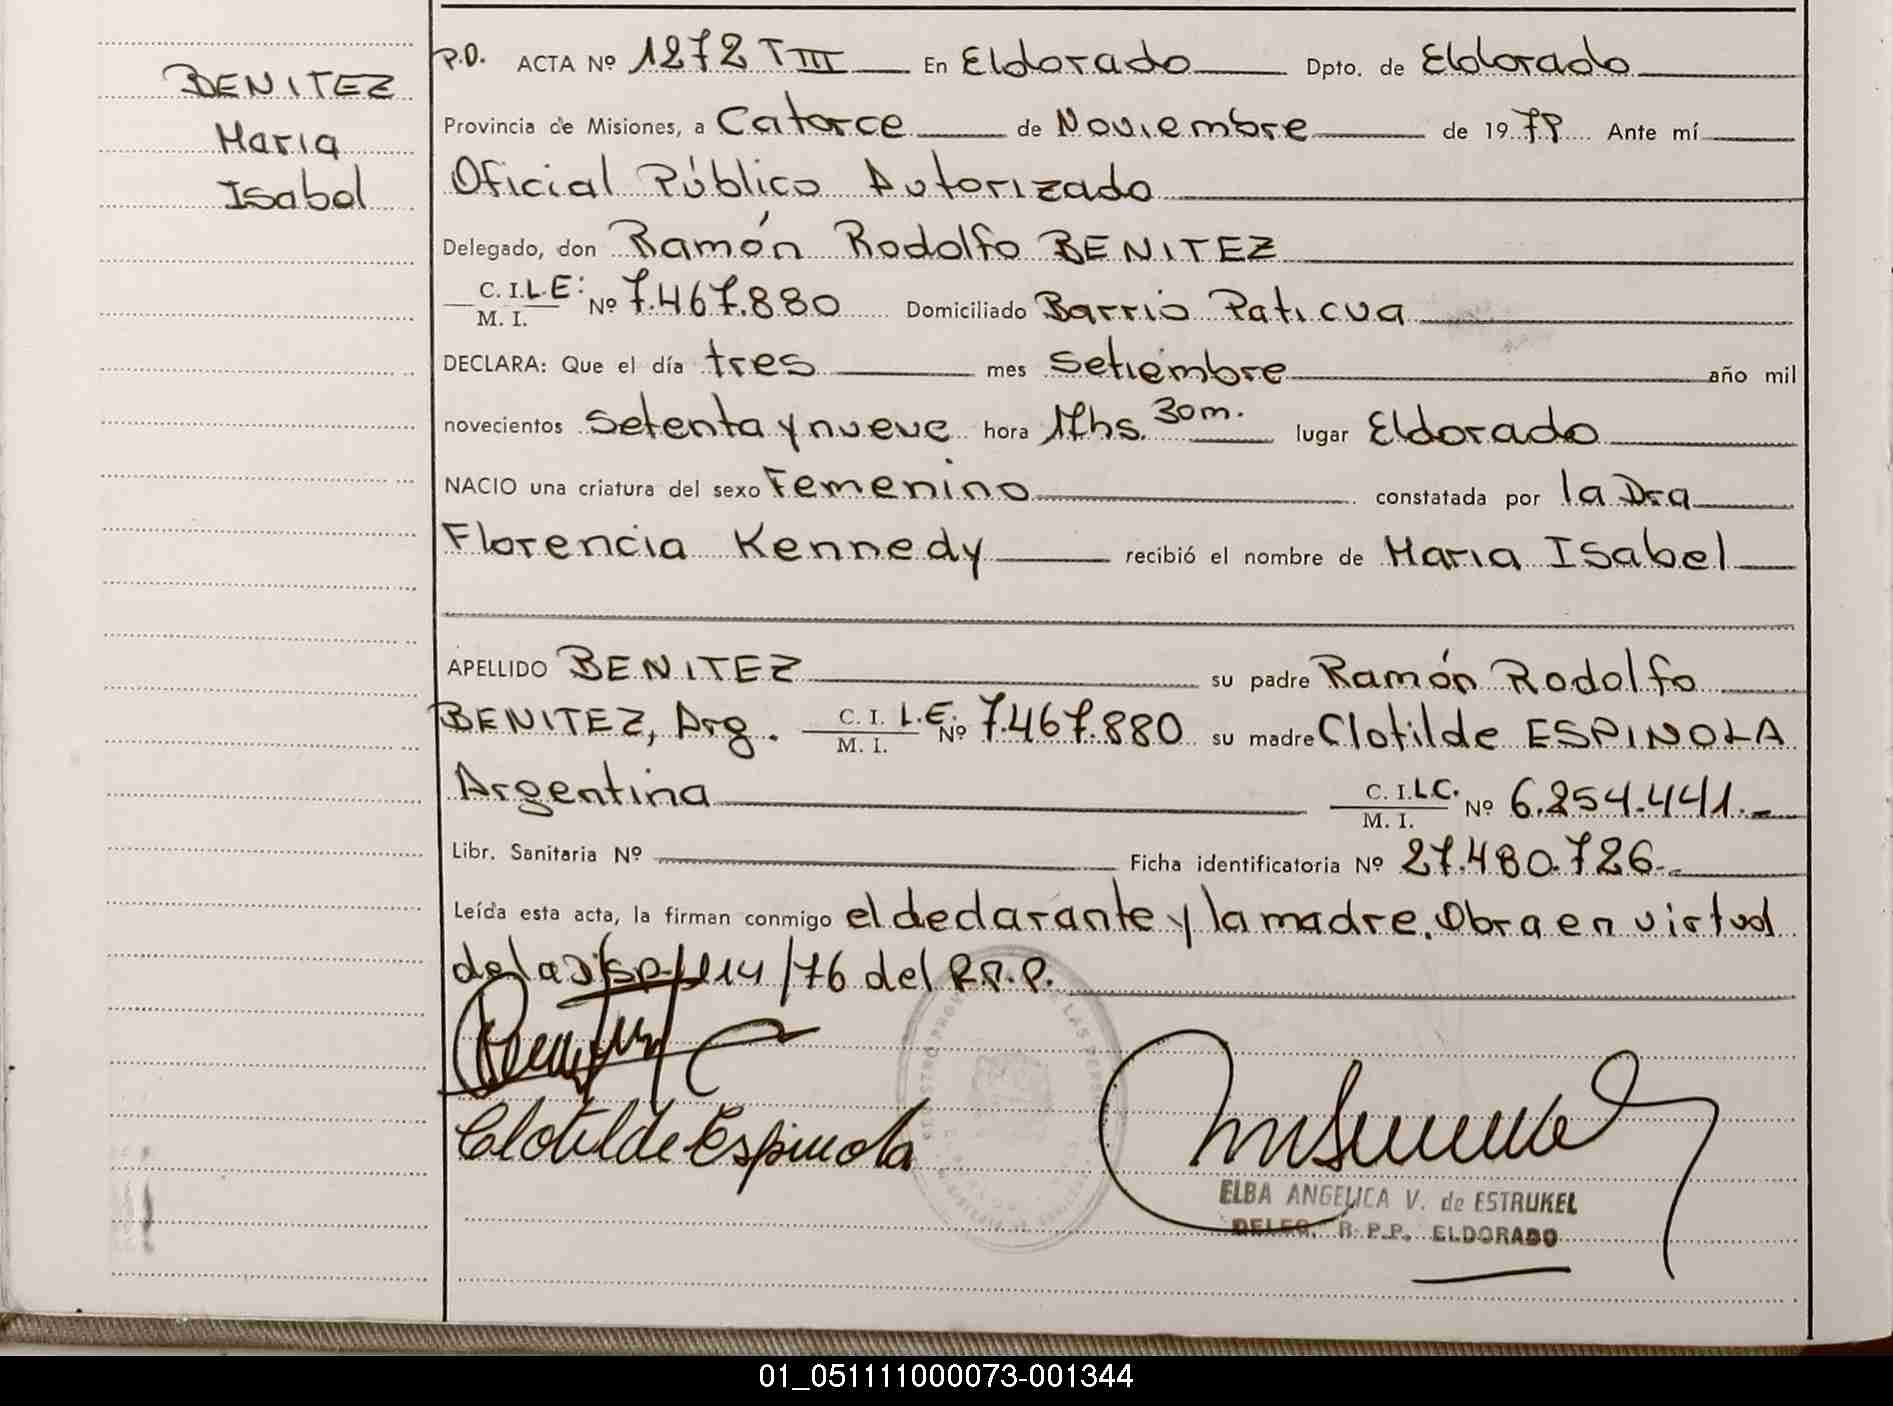 BENITEZ
Maria
Isabel
P.D. ACTA Nº 1272 T III En Eldorado Dpto. de Eldorado
Provincia de Misiones, a Catorce de Noviembre de 1979 Ante mí
Oficial Público Autorizado
Delegado, don Ramón Rodolfo BENITEZ
C. I. L.E: Nº 7.467.880 Domiciliado Barrio Paticua
M. I.
DECLARA: Que el día tres mes setiembre año mil
novecientos setenta y nueve hora 17hs. 30m. lugar Eldorado
NACIO una criatura del sexo Femenino constatada por la Dra
Florencia Kennedy recibió el nombre de Maria Isabel
APELLIDO BENITEZ su padre Ramón Rodolfo
BENITEZ, Arg. C. I. L.E. Nº 7.467.880 su madre Clotilde ESPINOLA
M. I.
Argentina C. I. L.C. Nº 6.254.441.-
M. I.
Libr. Sanitaria Nº Ficha identificatoria Nº 27.480.726.-
Leída esta acta, la firman conmigo el declarante y la madre. Obra en virtud
de la Disp. 114/76 del R.P.P.
Clotilde Espinola
ELBA ANGELICA V. de ESTRUKEL
DELEG. R.P.P. ELDORADO
01_051111000073-001344